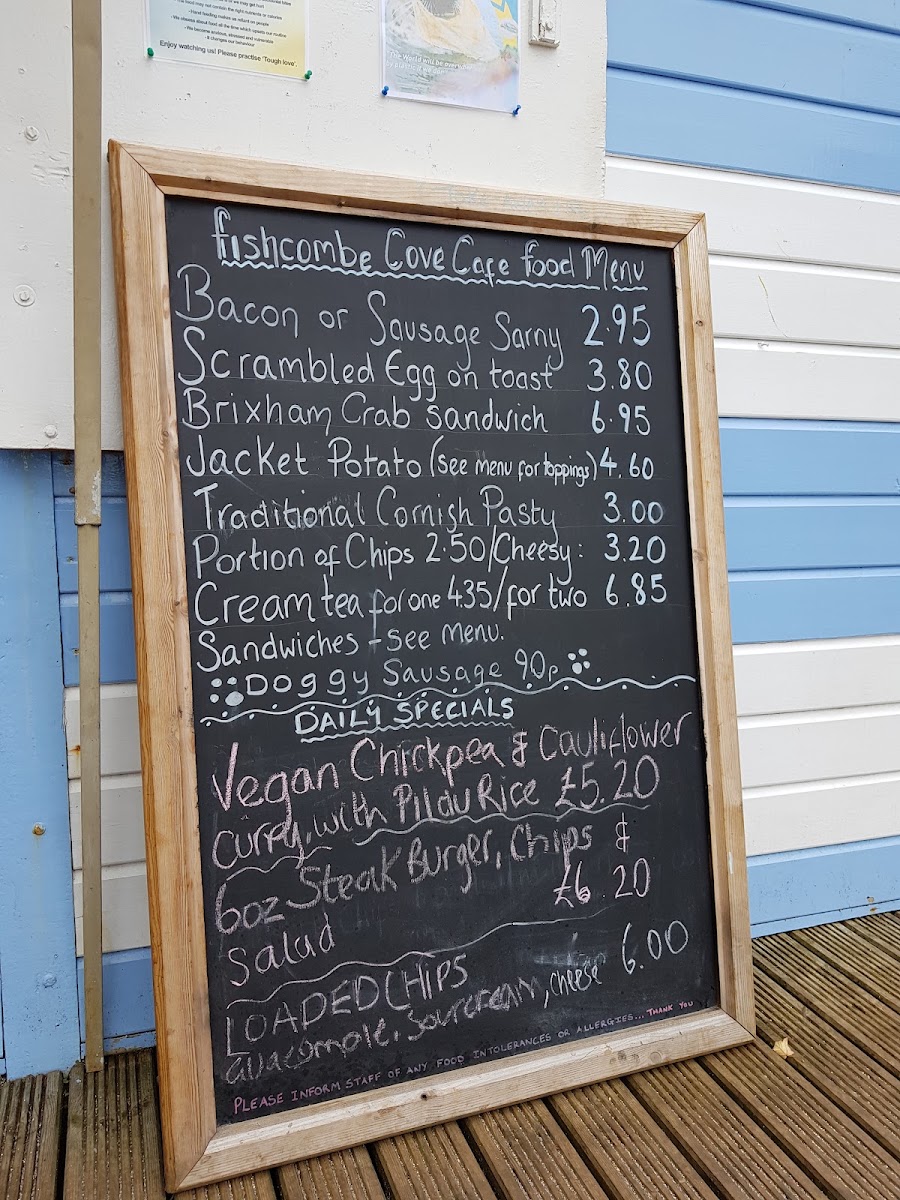 · Hand feeding makes us reliant on people
· We become anxious, stressed and vulnerable
· It changes our behaviour
Enjoy watching us! Please practise 'Tough love'.
The World will be
fishcombe Cove Cafe food Menu
Bacon or Sausage Sarny 2.95
Scrambled Egg on toast 3.80
Brixham Crab sandwich 6.95
Jacket Potato (see menu for toppings) 4.60
Traditional Cornish Pasty 3.00
Portion of Chips 2.50/Cheesy: 3.20
Cream tea for one 4.35/for two 6.85
Sandwiches - see menu.
Doggy Sausage 90p
DAILY SPECIALS
Vegan Chickpea & Cauliflower
curry, with Pilau Rice £5.20
6oz Steak Burger, Chips &
Salad £6.20
LOADED CHIPS
guacomole, sourcream, cheese 6.00
PLEASE INFORM STAFF OF ANY FOOD INTOLERANCES OR ALLERGIES... THANK YOU